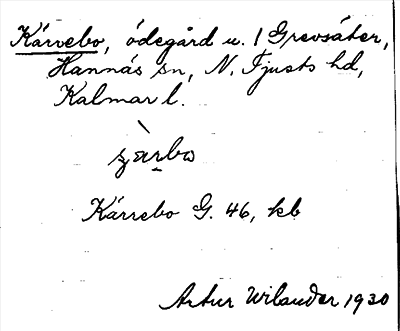 Kärrebo, ödegård u. 1 Grevsäter,
Hannäs sn, N. Tjusts hd,
Kalmar l.
Kärrebo G. 46, kb
Artur Wilander 1930